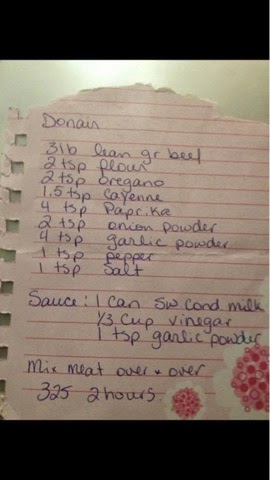 Donair
3lb lean gr beef
2 tsp flour
2 tsp oregano
1.5 tsp Cayenne
4 tsp Paprika
2 tsp onion powder
4 tsp garlic powder
1 tsp pepper
1 tsp Salt
Sauce: 1 Can Sw. Cond milk
1/3 Cup vinegar
1 tsp garlic powder
Mix meat over & over
325 2 hours